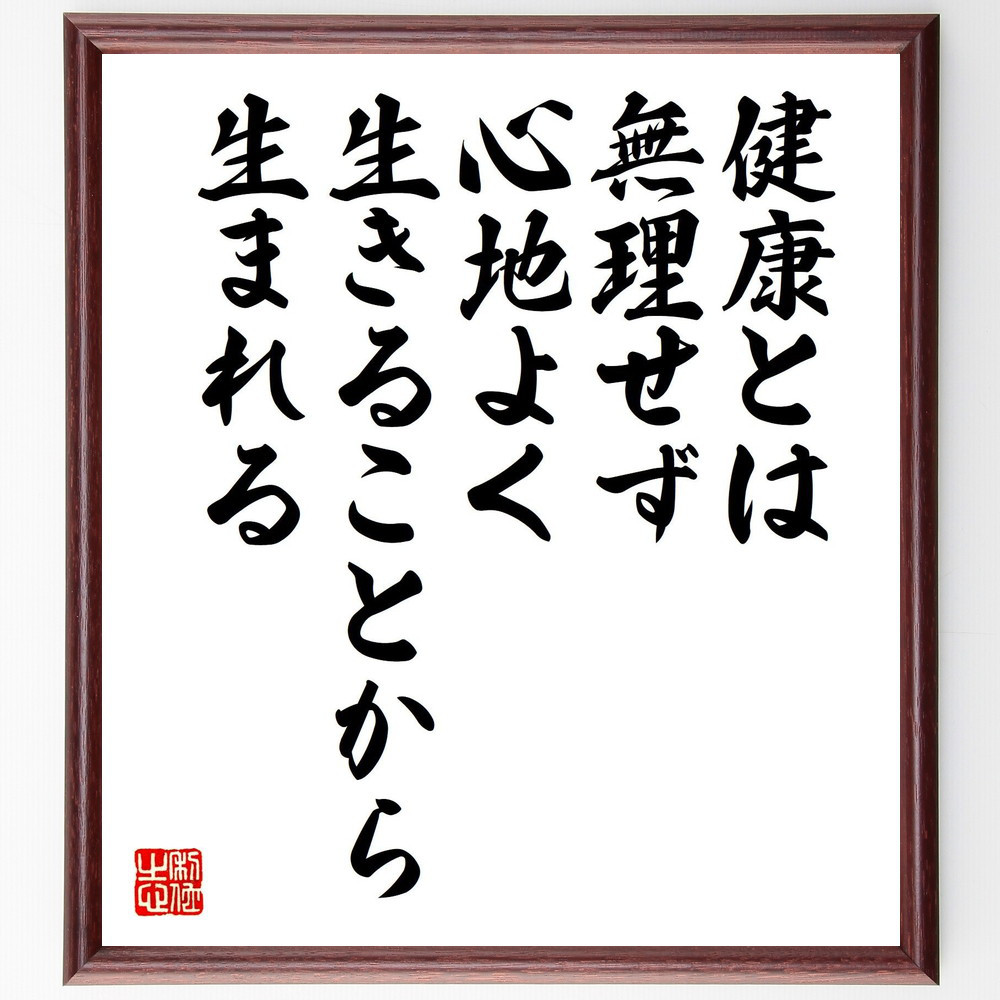 健康とは
無理せず
心地よく
生きることから
生まれる